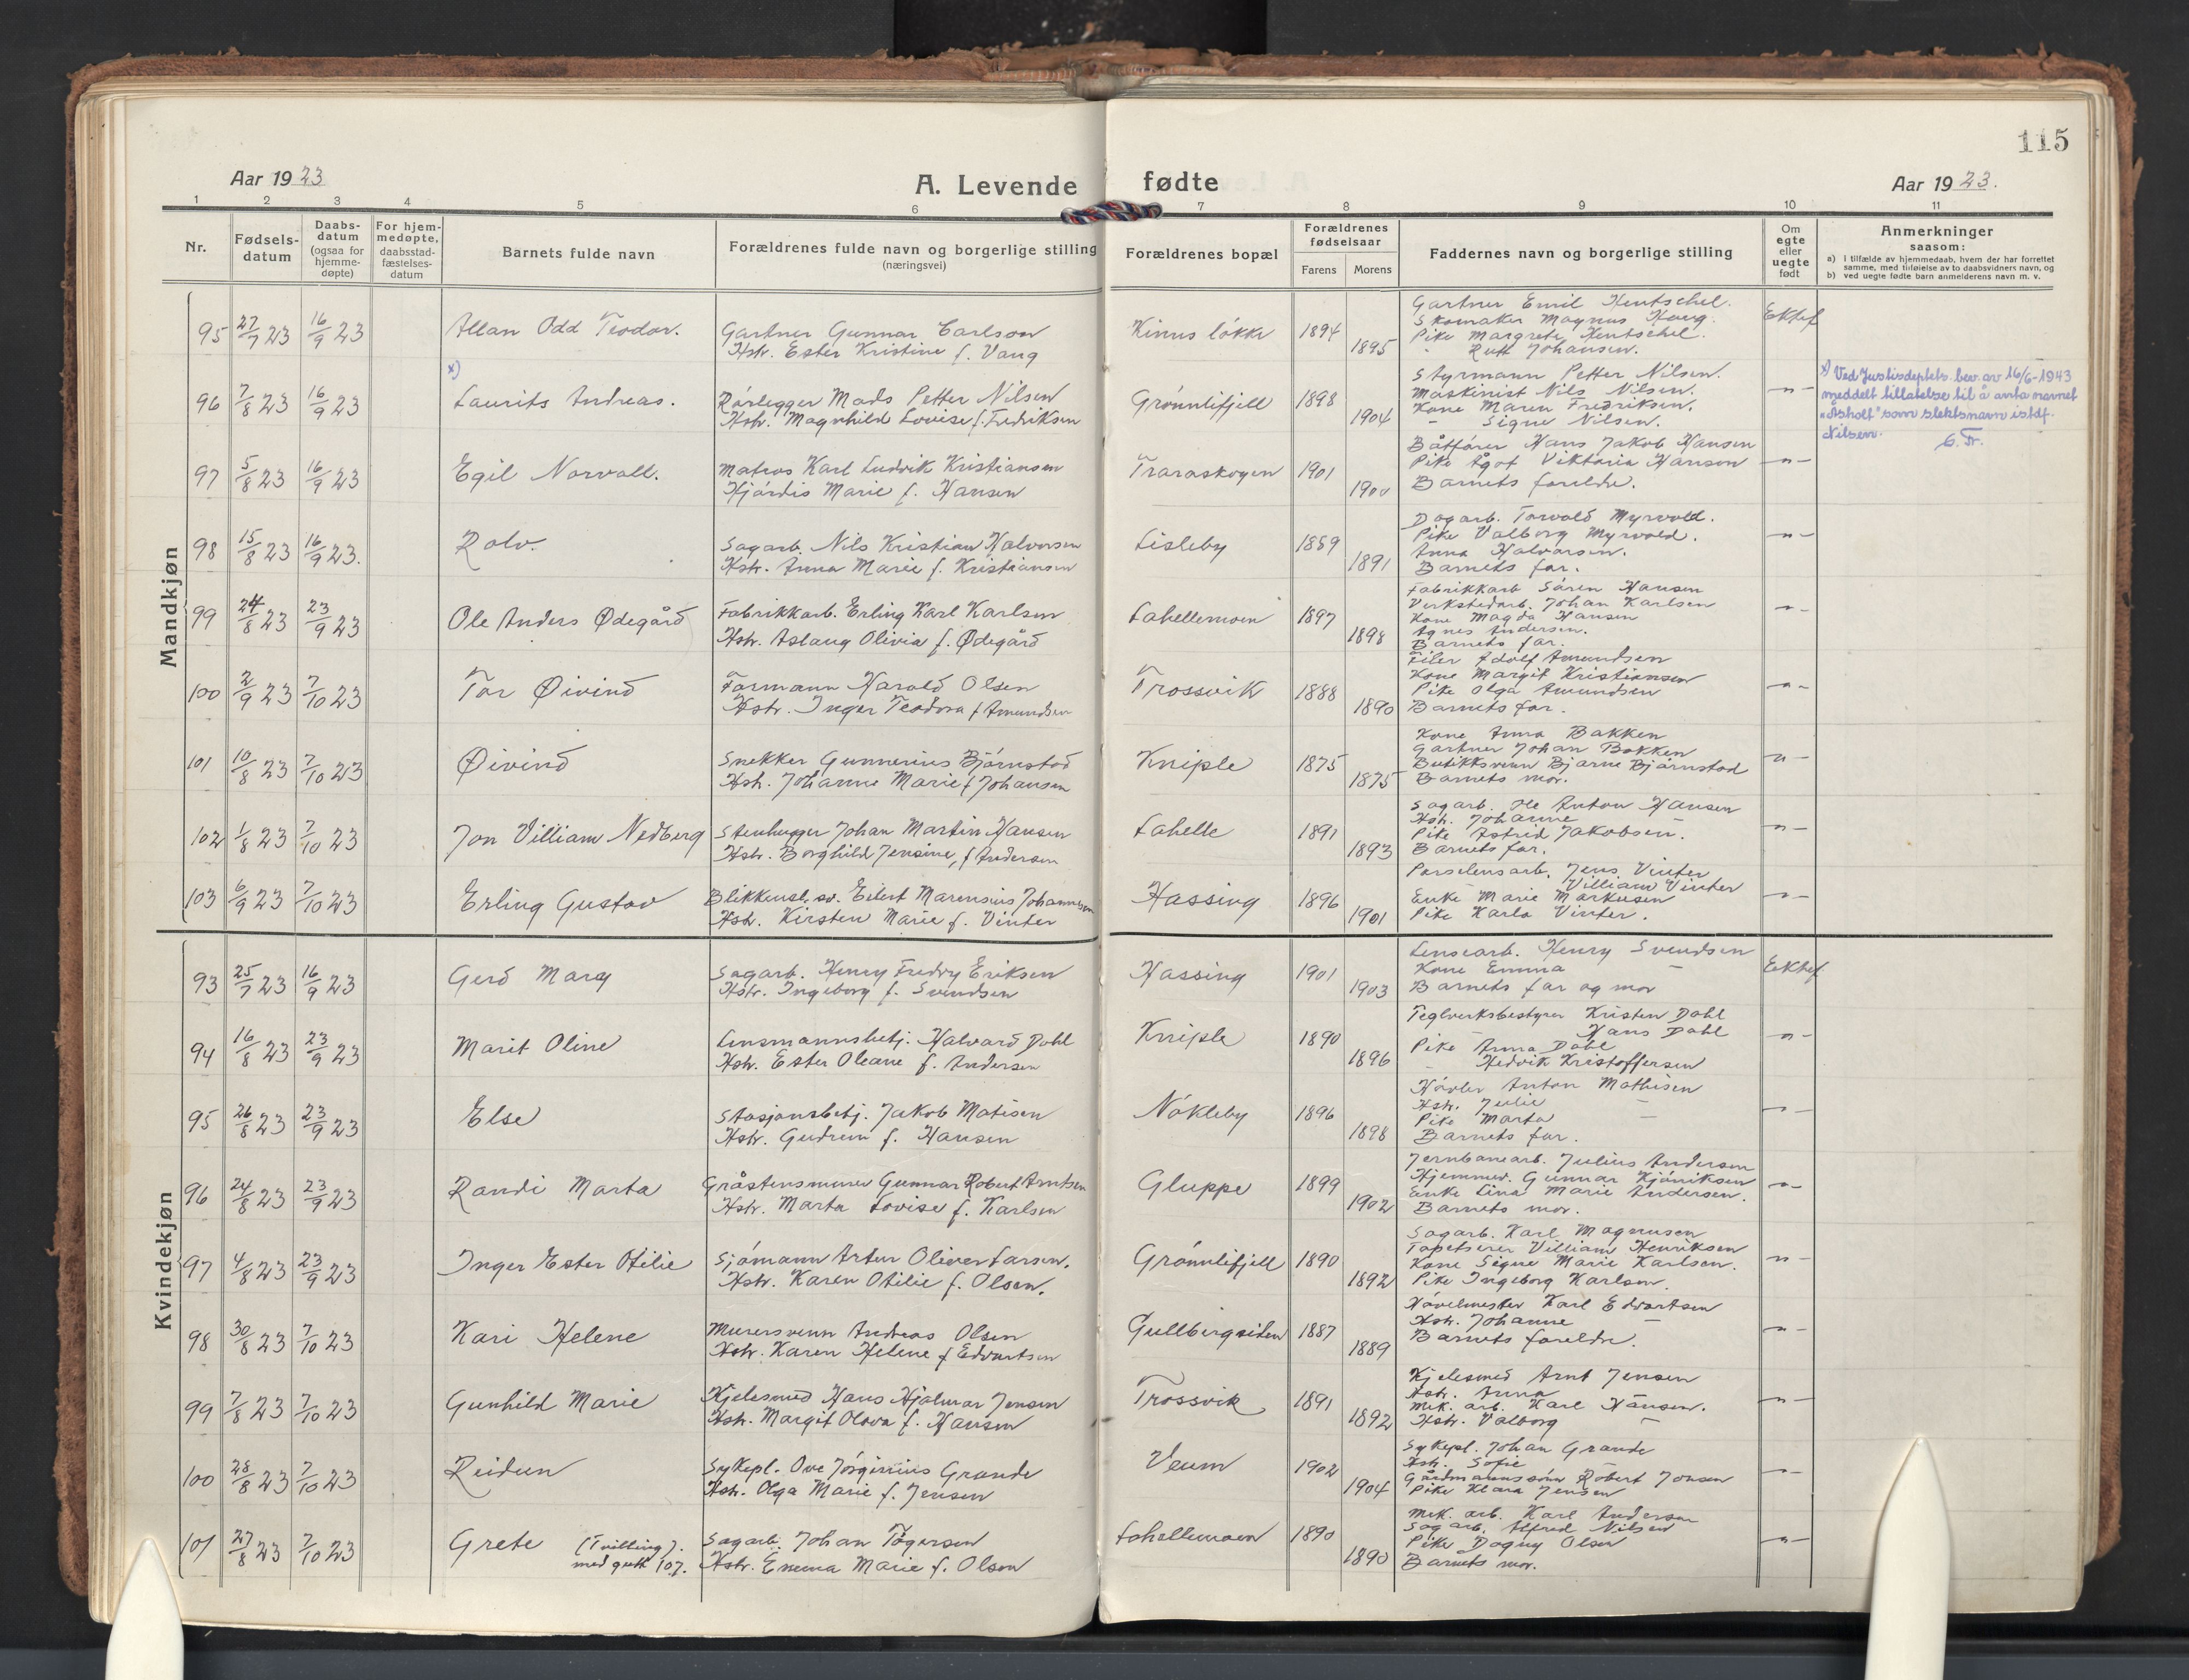 115
Aar 1923
A. Levende fødte
Aar 1923.
1 2 3 4 5 6 7 8 9 10 11
Nr.
Fødsels-
datum
Daabs-
datum
(ogsaa for
hjemme-
døpte)
For hjem-
medøpte,
daabsstad-
fæstelses-
datum
Barnets fulde navn
Forældrenes fulde navn og borgerlige stilling
(næringsvei)
Forældrenes bopæl
Forældrenes
fødselsaar
Farens Morens
Faddernes navn og borgerlige stilling
Om
egte
eller
uegte
født
Anmerkninger
saasom:
a) i tilfælde av hjemmedaab, hvem der har forrettet
samme, med tilføielse av to daabsvidners navn, og
b) ved uegte fødte barn anmelderens navn m. v.
Mandkjøn
95 27/7 23 16/9 23 Allan Odd Teodor.
Gartner Gunnar Carlson
Hstr. Ester Kristine f. Vang
Kinus løkke 1894 1895
Gartner Emil Hentschel.
Skomaker Magnus Haug.
Pike Margrete Hentschel.
" Ruth Johansen.
Ektef
x)
96 7/8 23 16/9 23 Laurits Andreas.
Rørlegger Mads Petter Nilsen
Hstr. Magnhild Lovise f. Fredriksen
Grønnlifjell 1898 1904
Styrmann Petter Nilsen.
Maskinist Nils Nilsen.
Kone Maren Fredriksen.
- Signe Nilsen.
-"-
x) Ved Justisdeptets bev. av 16/6-1943
meddelt tillatelse til å anta navnet
"Åsholt" som slektsnavn istdf.
Nilsen.
97 5/8 23 16/9 23 Egil Norvall.
Matros Karl Ludvik Kristiansen
Hjørdis Marie f. Hansen
Traraskogen 1901 1900
Båtfører Hans Jakob Hansen
Pike Ågot Viktoria Hansen
Barnets foreldre.
-"-
98 15/8 23 16/9 23. Rolv.
Sagarb. Nils Kristian Halvorsen
Hstr. Anna Marie f. Kristiansen
Lisleby 1889 1891
Dagarb. Torvald Myrvold.
Pike Valborg Myrvold.
Anna Halvorsen.
Barnets far.
-"-
99 24/8 23 23/9 23 Ole Anders Ødegård
Fabrikkarb. Erling Karl Karlsen
Hstr. Aslaug Olivia f. Ødegård
Lahellemoen 1897 1898
Fabrikkarb Søren Hansen
Verkstedarb. Johan Karlsen
Kone Magda Hansen
Agnes Andersen.
Barnets far.
-"-
100 2/9 23 7/10 23 Tor Øivind
Formann Harald Olsen
Hstr. Inger Teodora f Amundsen
Trossvik 1888 1890
Filer Adolf Amundsen
Kone Margit Kristiansen
Pike Olga Amundsen
Barnets far.
-"-
101 10/8 23 7/10 23 Øivind
Snekker Gunnerius Bjørnstad
Hstr. Johanne Marie f Johansen
Kniple 1875 1875
Kone Anna Bakken
Gartner Johan Bakken
Butikksvenn Bjarne Bjørnstad
Barnets mor.
-"-
102 1/8 23 7/10 23 Jon Villiam Nedberg
Stenhugger Johan Martin Hansen
Hstr. Borghild Jensine, f Andersen
Lahelle 1891 1893
Sagarb. Ole Anton Hansen
Hstr. Johanne -
Pike Astrid Jakobsen.
Barnets far.
-"-
103 6/9 23 7/10 23 Erling Gustav
Blikkensl. sv. Eilert Marensius Johannesen
Hstr. Kirsten Marie f. Vinter
Hassing 1896 1901
Porselensarb. Jens Vinter
- Villiam Vinter
Enke Marie Markusen
Pike Karla Vinter.
-"-
Kvindekjøn
93 25/7 23 16/9 23 Gerd Mary
Sagarb. Henry Fredry Eriksen
Hstr. Ingeborg f. Svendsen
Hassing 1901 1903
Lensearb. Henry Svendsen
Kone Emma -
Barnets far og mor
Ektef
94 16/8 23 23/9 23 Marit Oline
Lensmannsbetj. Halvard Dahl
Hstr. Ester Oleane f. Andersen
Kniple 1890 1896
Teglverksbestyrer Kristen Dahl
Hans Dahl
Pike Anna Dahl
- Hedvik Kristoffersen
-"-
95 26/8 23 23/9 23 Else
Stasjonsbetj. Jakob Matisen
Hstr. Gudrun f. Hansen
Nøkleby 1896 1898
Høvler Anton Mathisen
Hstr. Julie -
Pike Marta -
Barnets far.
-"-
96 24/8 23 23/9 23 Randi Marta
Gråstensmurer Gunnar Robert Arntsen
Hstr. Marta Lovise f. Karlsen
Gluppe 1899 1902
Jernbanearb. Julius Andersen
Hjemmev. Gunnar Kjøniksen
Enke Lina Marie Andersen.
Barnets mor.
-"-
97 4/8 23 23/9 23 Inger Ester Otilie
Sjømann Artur Oliver Larsen.
Hstr. Karen Otilie f. Olsen.
Grønnlifjell 1890 1892
Sagarb. Karl Magnusen
Tapetserer Villiam Henriksen
Kone Signe Marie Karlsen.
Pike Ingeborg Karlsen.
-"-
98 30/8 23 7/10 23 Kari Helene
Murersvenn Andreas Olsen
Hstr. Karen Helene f Edvartsen
Gullbergsiden 1887 1889
Høvelmester Karl Edvartsen
Hstr. Johanne -
Barnets foreldre.
-"-
99 7/8 23 7/10 23 Gunhild Marie
Kjelesmed Hans Hjalmar Jensen
Hstr. Margit Olava f. Hansen
Trossvik 1891 1892
Kjelesmed Arnt Jensen
Hstr. Anna -
Mek. arb. Karl Hansen.
Hstr. Valborg -
-"-
100 28/8 23 7/10 23 Reidun
Sykepl. Ove Jørginius Grande
Hstr. Olga Marie f. Jensen
Veum 1902 1904
Sykepl. Johan Grande
Hstr. Sofie -
Gårdmannssønn Robert Jensen
Pike Klara Jensen
-"-
101 27/8 23 7/10 23 Grete (Tvilling).
med gutt 107.
Sagarb. Johan Tøgersen
Hstr. Emma Marie f. Olsen
Lahellemoen 1890 1890
Mek. arb. Karl Andersen
Sagarb. Alfred Nilsen
Pike Dagny Olsen
Barnets mor.
-"-